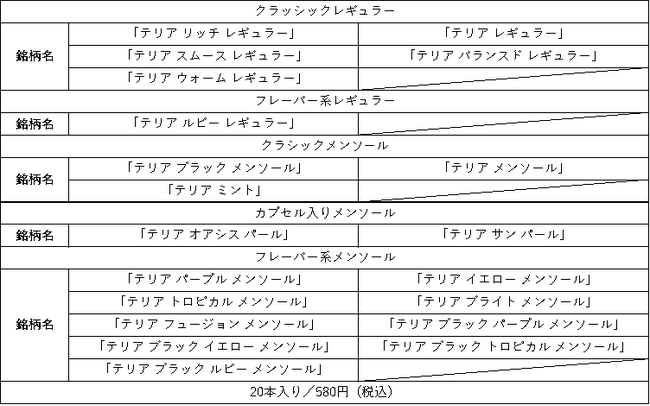 クラッシックレギュラー
銘柄名
「テリア リッチ レギュラー」 「テリア レギュラー」
「テリア スムース レギュラー」 「テリア バランスド レギュラー」
「テリア ウォーム レギュラー」
フレーバー系レギュラー
銘柄名 「テリア ルビー レギュラー」
クラシックメンソール
銘柄名
「テリア ブラック メンソール」 「テリア メンソール」
「テリア ミント」
カプセル入りメンソール
銘柄名 「テリア オアシス パール」 「テリア サン パール」
フレーバー系メンソール
銘柄名
「テリア パープル メンソール」 「テリア イエロー メンソール」
「テリア トロピカル メンソール」 「テリア ブライト メンソール」
「テリア フュージョン メンソール」 「テリア ブラック パープル メンソール」
「テリア ブラック イエロー メンソール」 「テリア ブラック トロピカル メンソール」
「テリア ブラック ルビー メンソール」
20本入り/580円(税込)